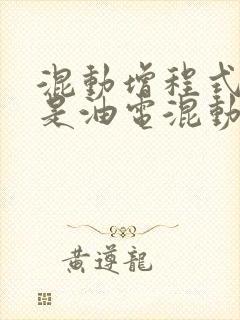 混動增程式
是油電混動
黄遵龍